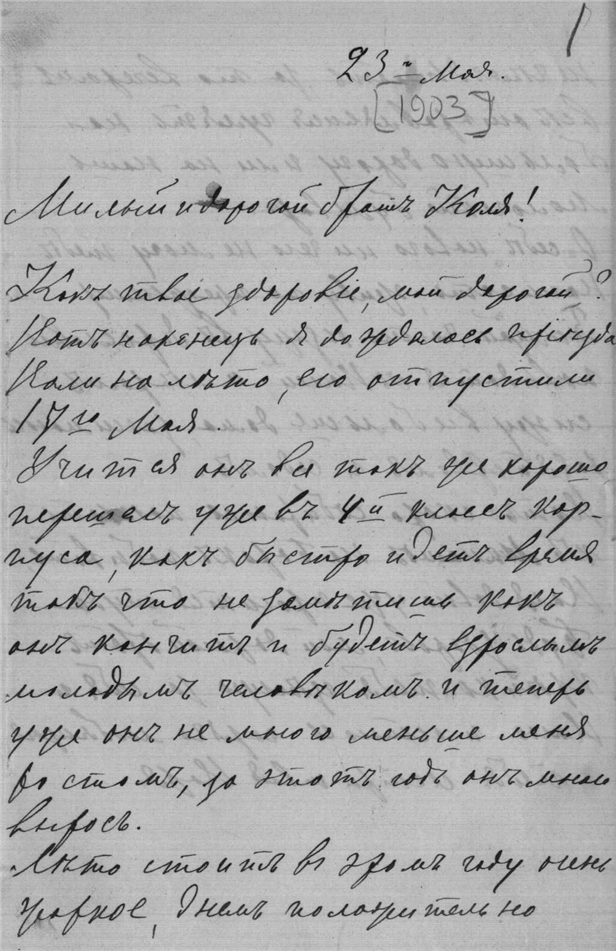 1
23го Мая.
[1903]
Милый и дорогой братъ Коля!
Какъ твое здоровье, мой дорогой?
Вотъ наконецъ я дождалась приезда
Коли на лѣто, его отпустили
17го Мая.
Учится онъ все такъ же хорошо
перешелъ уже въ 4й классъ кор-
пуса, какъ быстро идетъ время
такъ что не замѣтишь какъ
онъ кончитъ и будетъ взрослымъ
молодымъ человѣкомъ и теперь
уже онъ не много меньше меня
ростомъ, за этотъ годъ онъ много
выросъ.
Лѣто стоитъ въ этомъ году очень
жаркое, днемъ положительно